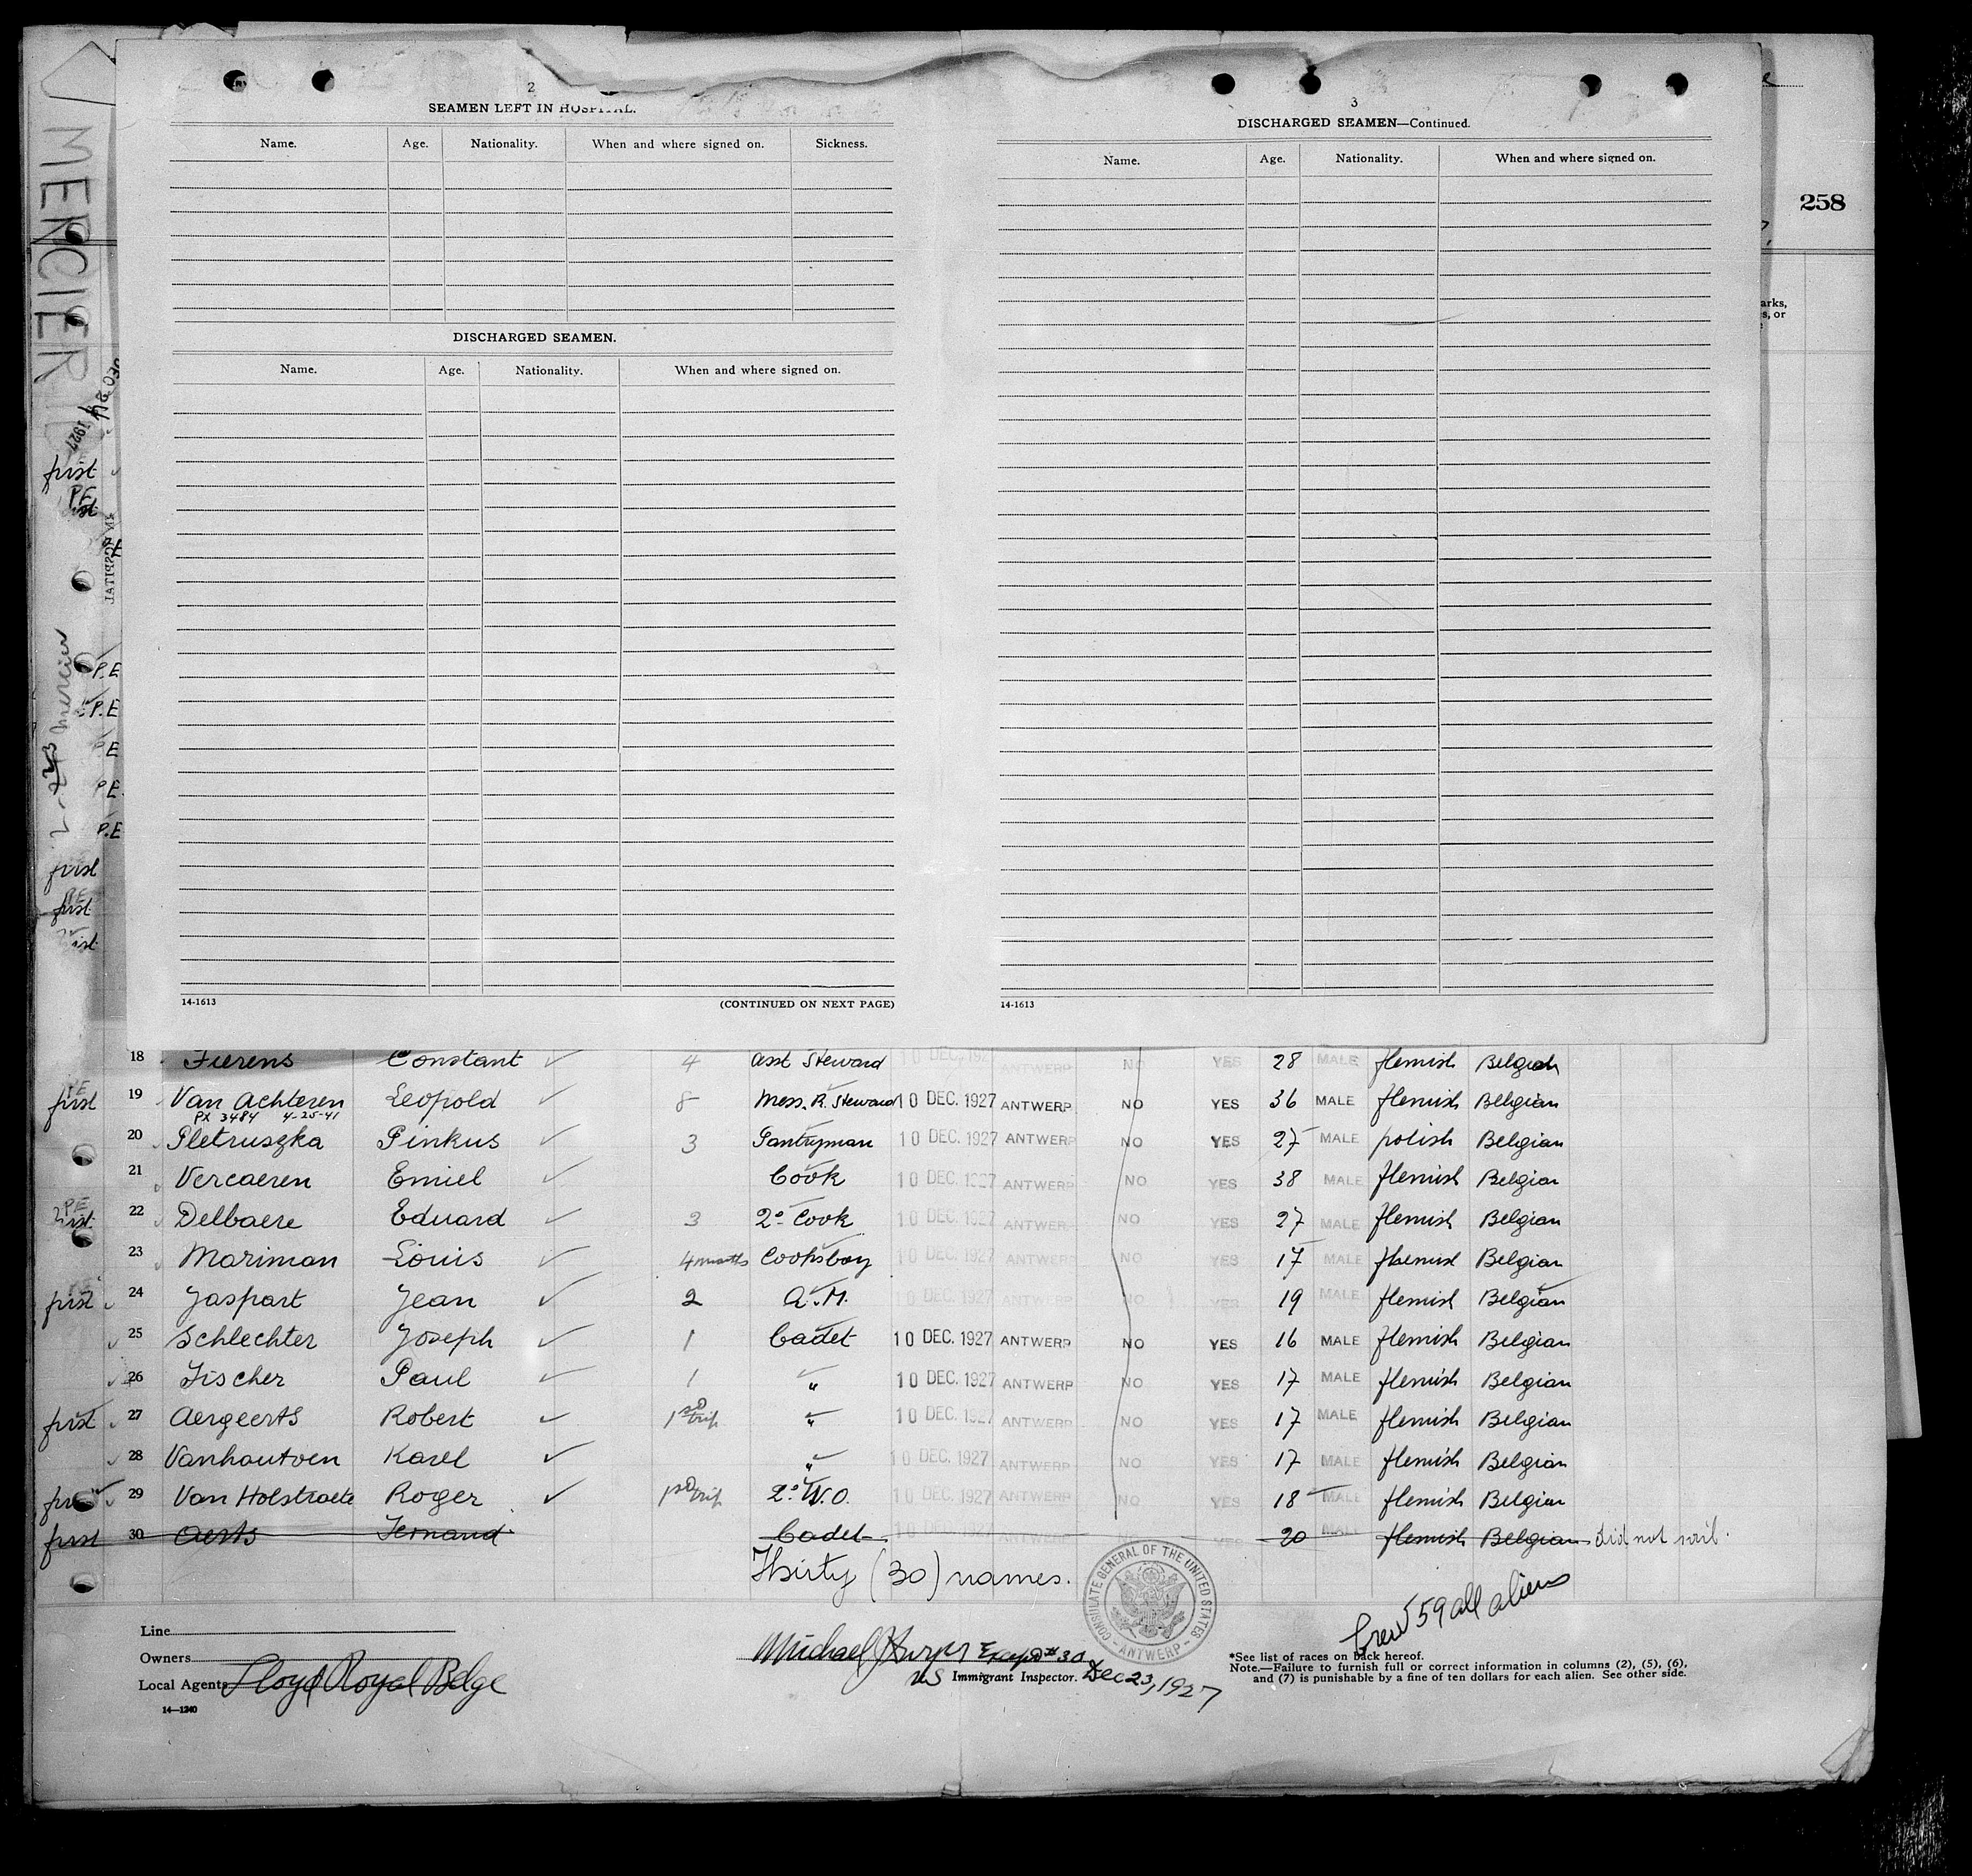 MERCIER
258
2
SEAMEN LEFT IN HOSPITAL.
Name. Age. Nationality. When and where signed on. Sickness.
DISCHARGED SEAMEN.
Name. Age. Nationality. When and where signed on.
14-1613 (CONTINUED ON NEXT PAGE)
3
DISCHARGED SEAMEN—Continued.
Name. Age. Nationality. When and where signed on.
14-1613
arks,
s, or
first
P.E
P.E
P.E
P.E
P.E
first
first
18 Fierens Constant 4 asst Steward 10 DEC. 192 ANTWERP NO YES 28 MALE flemish Belgian
first 19 Van Achteren Leopold 8 Mess. R. Steward 10 DEC. 1927 ANTWERP NO YES 36 MALE flemish Belgian
PX 3484 4-25-41
20 Pletruszka Pinkus 3 Pantryman 10 DEC. 1927 ANTWERP NO YES 27 MALE polish Belgian
21 Vercaeren Emiel Cook 10 DEC. 1927 ANTWERP NO YES 38 MALE flemish Belgian
22 Delbaere Eduard 3 2º Cook 10 DEC. 1927 ANTWERP NO YES 27 MALE flemish Belgian
23 Mariman Louis 4 months Cooksboy 10 DEC. 1927 ANTWERP NO YES 17 MALE flemish Belgian
first 24 Jaspart Jean 2 A.M. 10 DEC. 1927 ANTWERP NO YES 19 MALE flemish Belgian
25 Schlechter Joseph 1 Cadet 10 DEC. 1927 ANTWERP NO YES 16 MALE flemish Belgian
26 Fischer Paul 1 " 10 DEC. 1927 ANTWERP NO YES 17 MALE flemish Belgian
first 27 Aergeerts Robert 1st trip " 10 DEC. 1927 ANTWERP NO YES 17 MALE flemish Belgian
28 Vanhoutven Karel " 10 DEC. 1927 ANTWERP NO YES 17 MALE flemish Belgian
first 29 Van Holstraete Roger 1st trip 2º W.O. 10 DEC. 1927 ANTWERP NO YES 18 MALE flemish Belgian
first 30 Aerts Fernand Cadet 20 MALE flemish Belgian did not sail.
Thirty (30) names.
CONSULATE GENERAL OF THE UNITED STATES - ANTWERP -
Crew 59 all aliens
Line
Owners
Local Agents Lloyd Royal Belge
14—1240
Michael J Except # 30
US Immigrant Inspector. Dec 23, 1927
*See list of races on back hereof.
Note.—Failure to furnish full or correct information in columns (2), (5), (6),
and (7) is punishable by a fine of ten dollars for each alien. See other side.